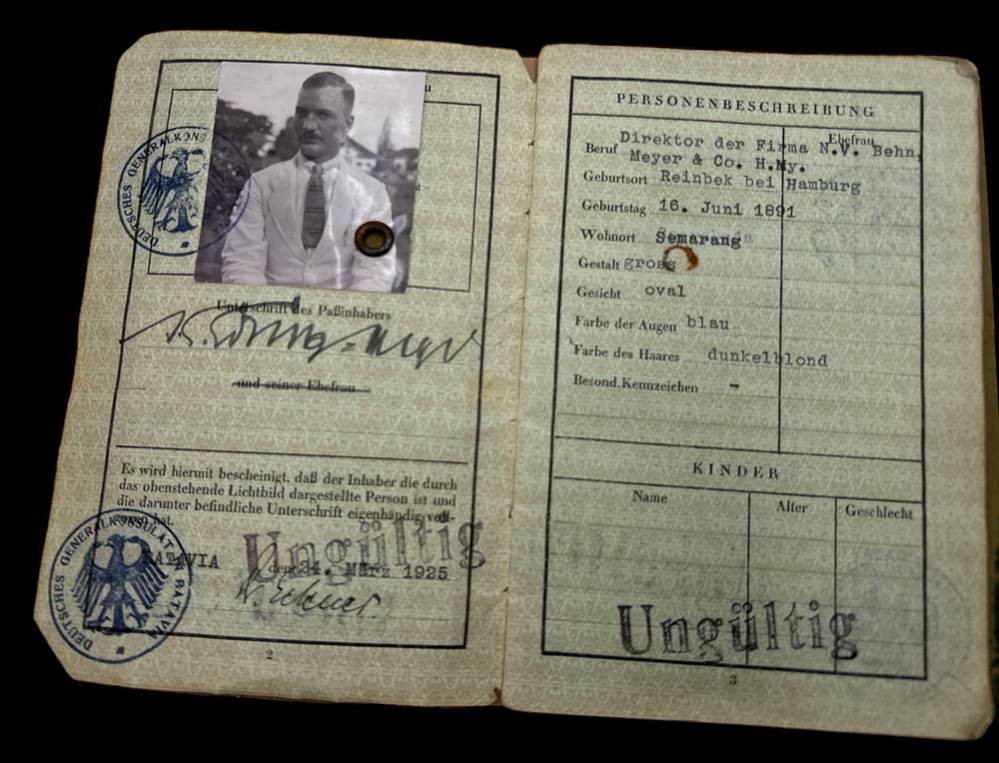 DEUTSCHES GENERALKONS
Unterschrift des Paßinhabers
und seiner Ehefrau
Es wird hiermit bescheinigt, daß der Inhaber die durch
das obenstehende Lichtbild dargestellte Person ist und
die darunter befindliche Unterschrift eigenhändig voll-
hat.
BATAVIA den 24. März 1925
Ungültig
DEUTSCHES GENERALKONSULAT BATAVIA
2
PERSONENBESCHREIBUNG
Ehefrau
Beruf Direktor der Firma N.V. Behn,
Meyer & Co. H.My.
Geburtsort Reinbek bei Hamburg
Geburtstag 16. Juni 1891
Wohnort Semarang
Gestalt gross
Gesicht oval
Farbe der Augen blau
Farbe des Haares dunkelblond
Besond. Kennzeichen -
KINDER
Name Alter Geschlecht
Ungültig
3